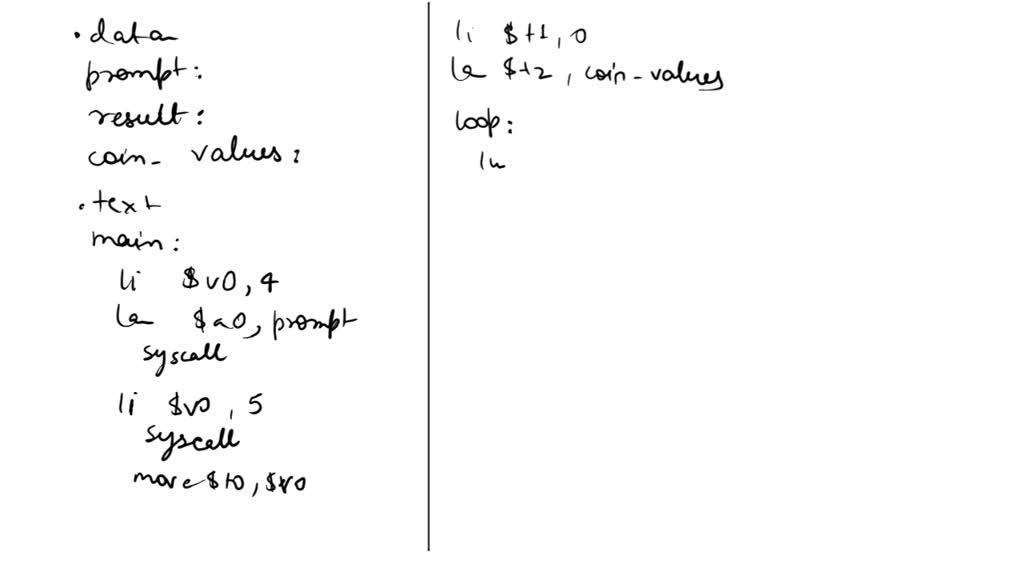 .data
prompt:
result:
coin_ values:
.text
main:
li $v0, 4
la $a0, prompt
syscall
li $v0, 5
syscall
move $t0, $v0
li $t1, 0
la $t2, coin_values
loop:
lw